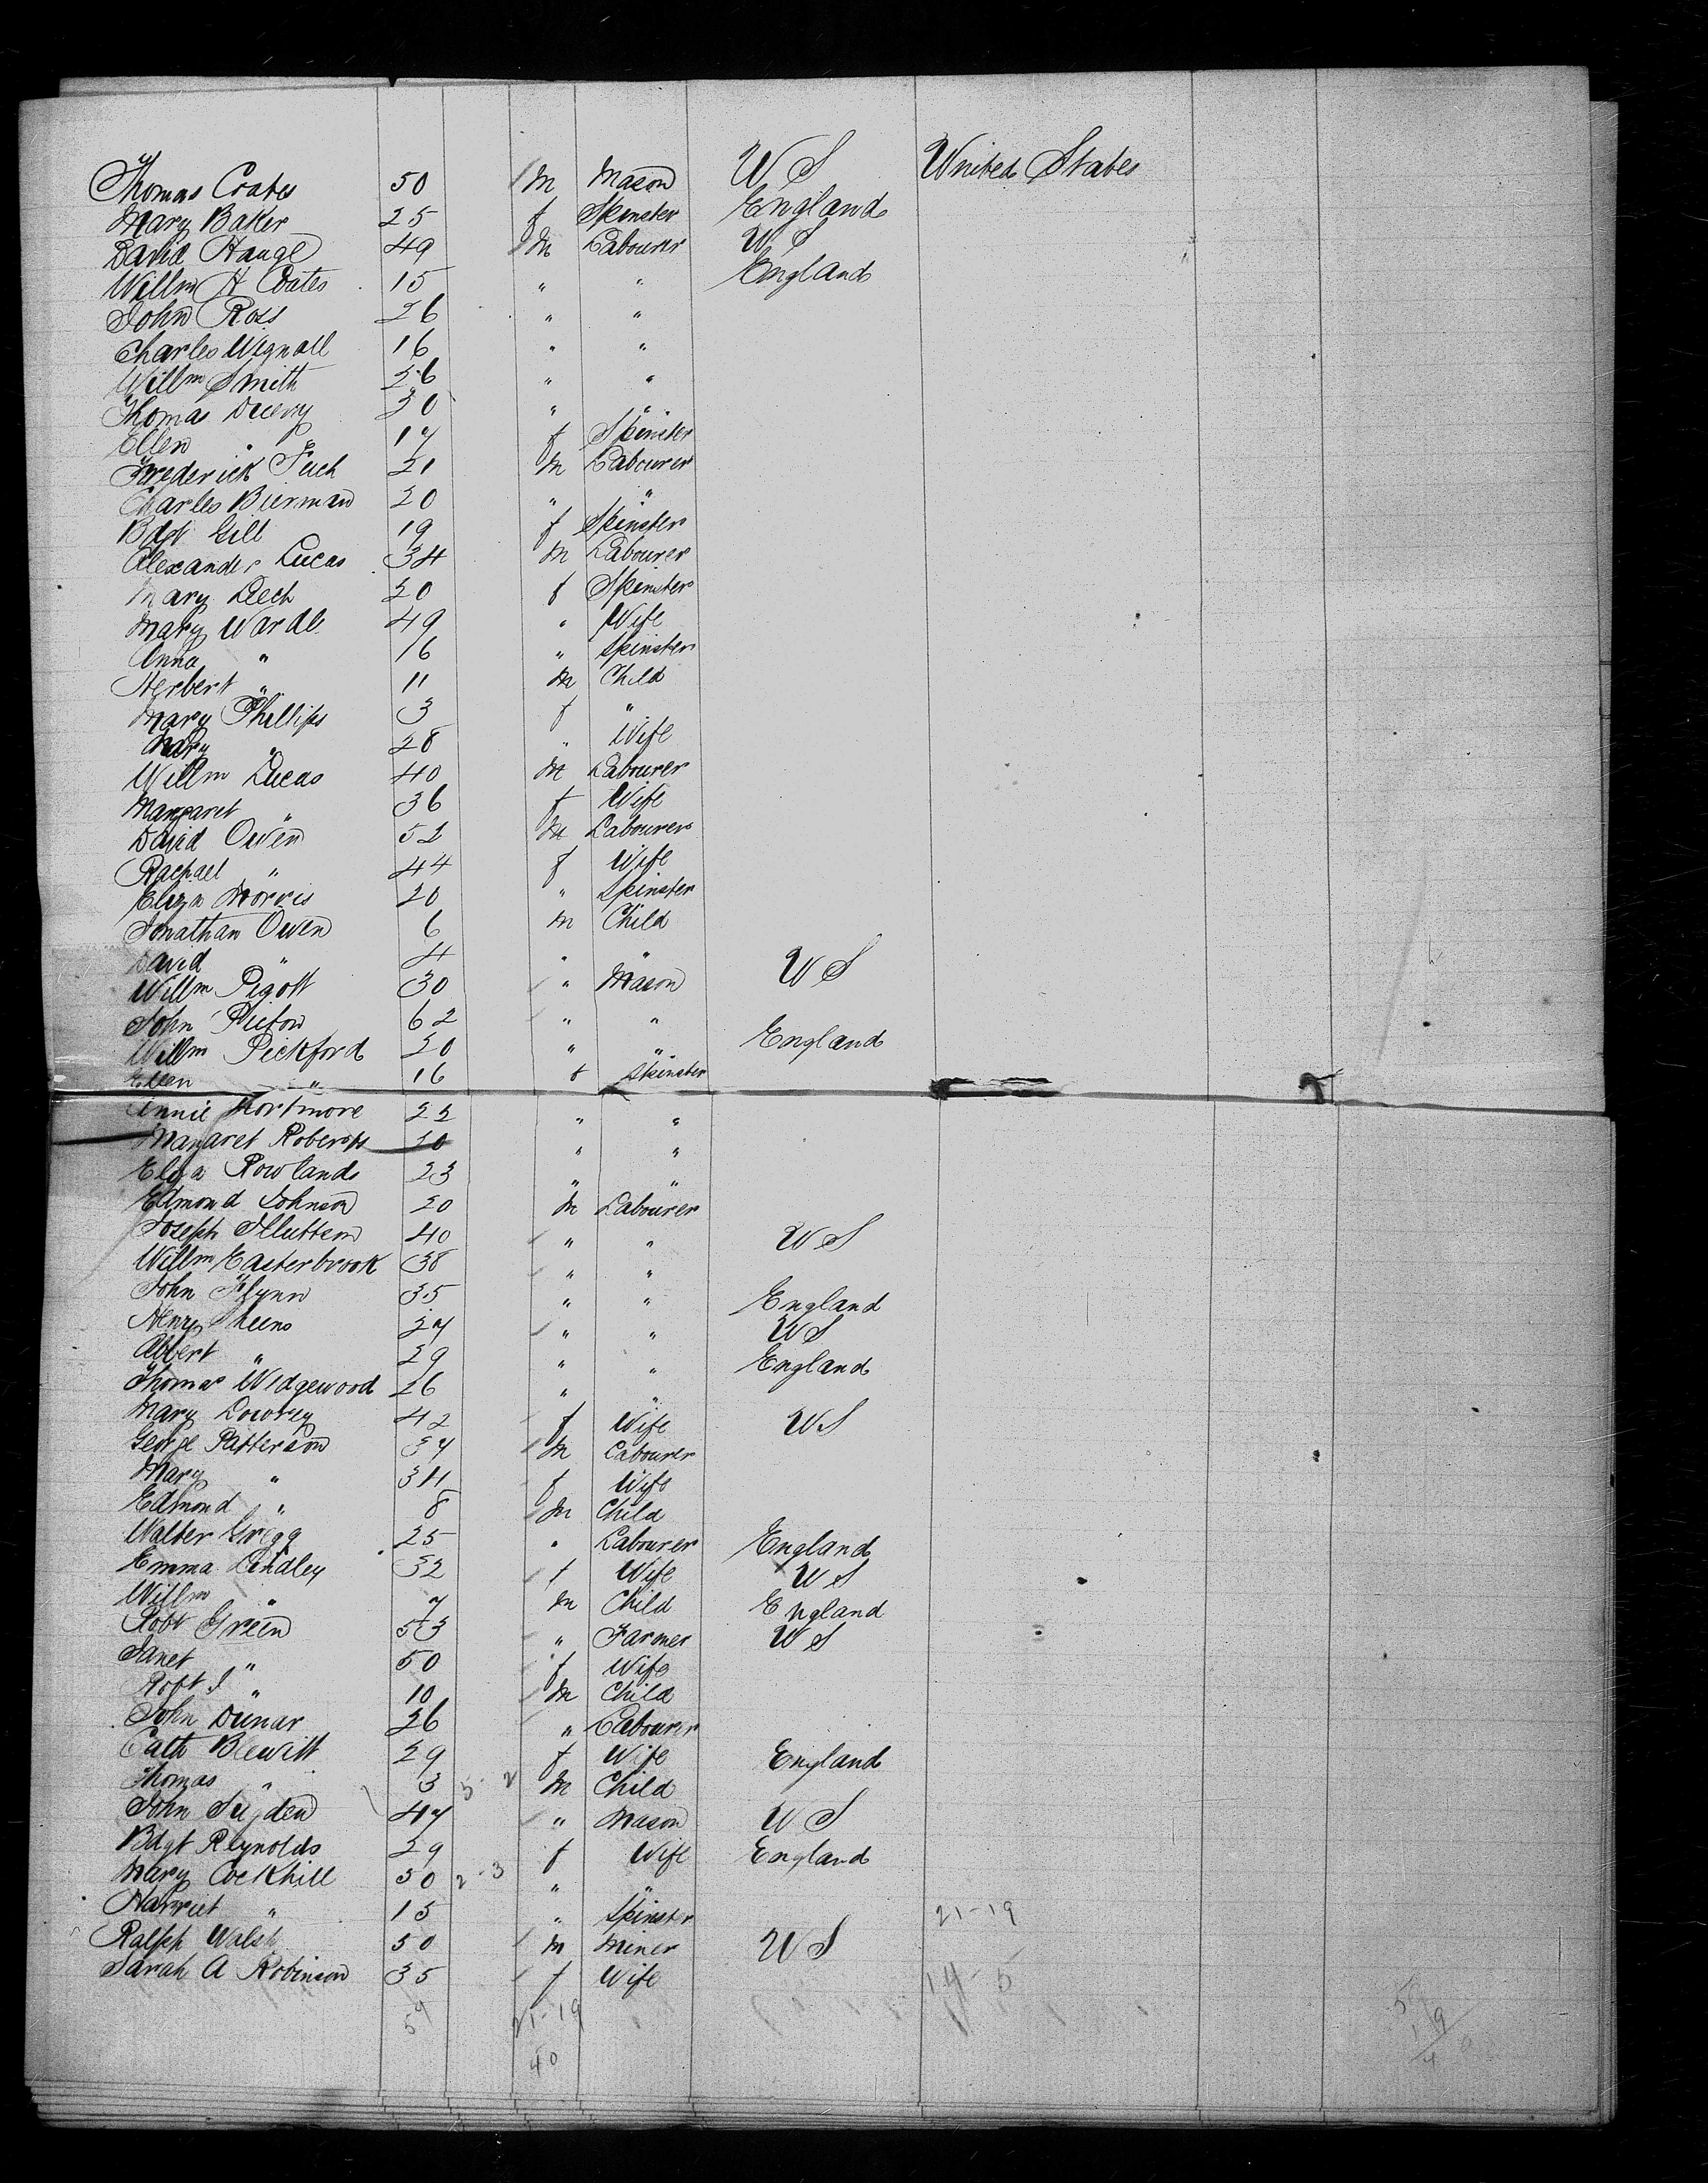 Thomas Coates 50 M Mason U S United States
Mary Baker 25 f Spinster England
David Hauge 49 M Labourer U S
Willm H Coates 15 " " England
John Ross 26 " "
Charles Wignall 16 " "
Willm Smith 26 " "
Thomas 20 " "
Ellen " 17 f Spinster
Frederick 21 M Labourer
Charles Bierman 20 " "
Bdgt Gill 19 f Spinster
Alexander Lucas 34 M Labourer
Mary Leech 20 f Spinster
Mary Wardle 49 " Wife
Anna " 16 " Spinster
Herbert " 11 M Child
Mary Phillips 3 f "
Mary " 28 " Wife
Willm Lucas 40 M Labourer
Margaret " 36 f Wife
David Owen 52 M Labourer
Rachael " 44 f Wife
Eliza Morris 20 " Spinster
Jonathan Owen 6 M Child
David " 4 " "
Willm Pigott 30 " Mason U S
John Picton 62 " "
Willm Pickford 20 " " England
Ellen " 16 f Spinster
Annie Mortimore 22 " "
Margaret Roberts 20 " "
Eliza Rowlands 23 " "
Edmond Johnson 20 M Labourer
Joseph 40 " " U S
Willm Easterbrook 38 " "
John Flynn 35 " " England
Henry 27 " " U S
Albert " 29 " " England
Thomas Widgewood 26 " "
Mary Lowrey 42 f Wife U S
George Patterson 37 M Labourer
Mary " 34 f Wife
Edmond " 8 M Child
Walter Grigg 25 " Labourer England
Emma Lindley 32 f Wife U S
Willm " 7 M Child England
Robt Green 53 " Farmer U S
Janet " 50 f Wife
Robt J " 10 M Child
John Dunar 26 " Labourer
Cath Blewitt 29 f Wife England
Thomas " 3 5-2 M Child
John Sugden 47 " Mason U S
Bdgt Reynolds 29 f Wife England
Mary Cockhill 50 2-3 " "
Harriet " 15 " Spinster 21-19
Ralph Walsh 50 M Miner U S
Sarah A Robinson 35 f Wife 14-5
59 21-19
40